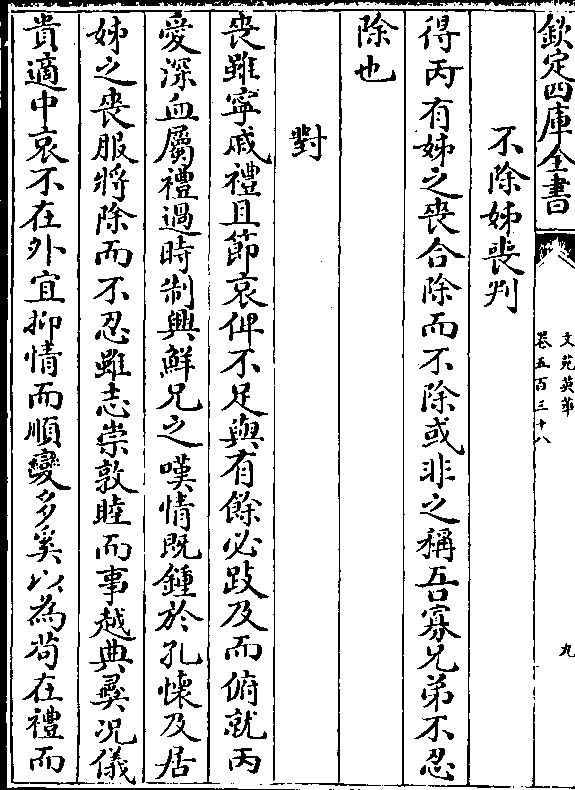 欽定四庫全書
文苑英華
卷五百三十八
九
不除姊喪判
得丙有姊之喪合除而不除或非之稱吾寡兄弟不忍
除也
對
喪雖寧戚禮且節哀俾不足與有餘必跂及而俯就丙
愛深血屬禮過時制興鮮兄之嘆情既鍾於孔懷及居
姊之喪服將除而不忍雖志崇敦睦而事越典彞况儀
貴適中哀不在外宜抑情而順變多奚以為茍在禮而